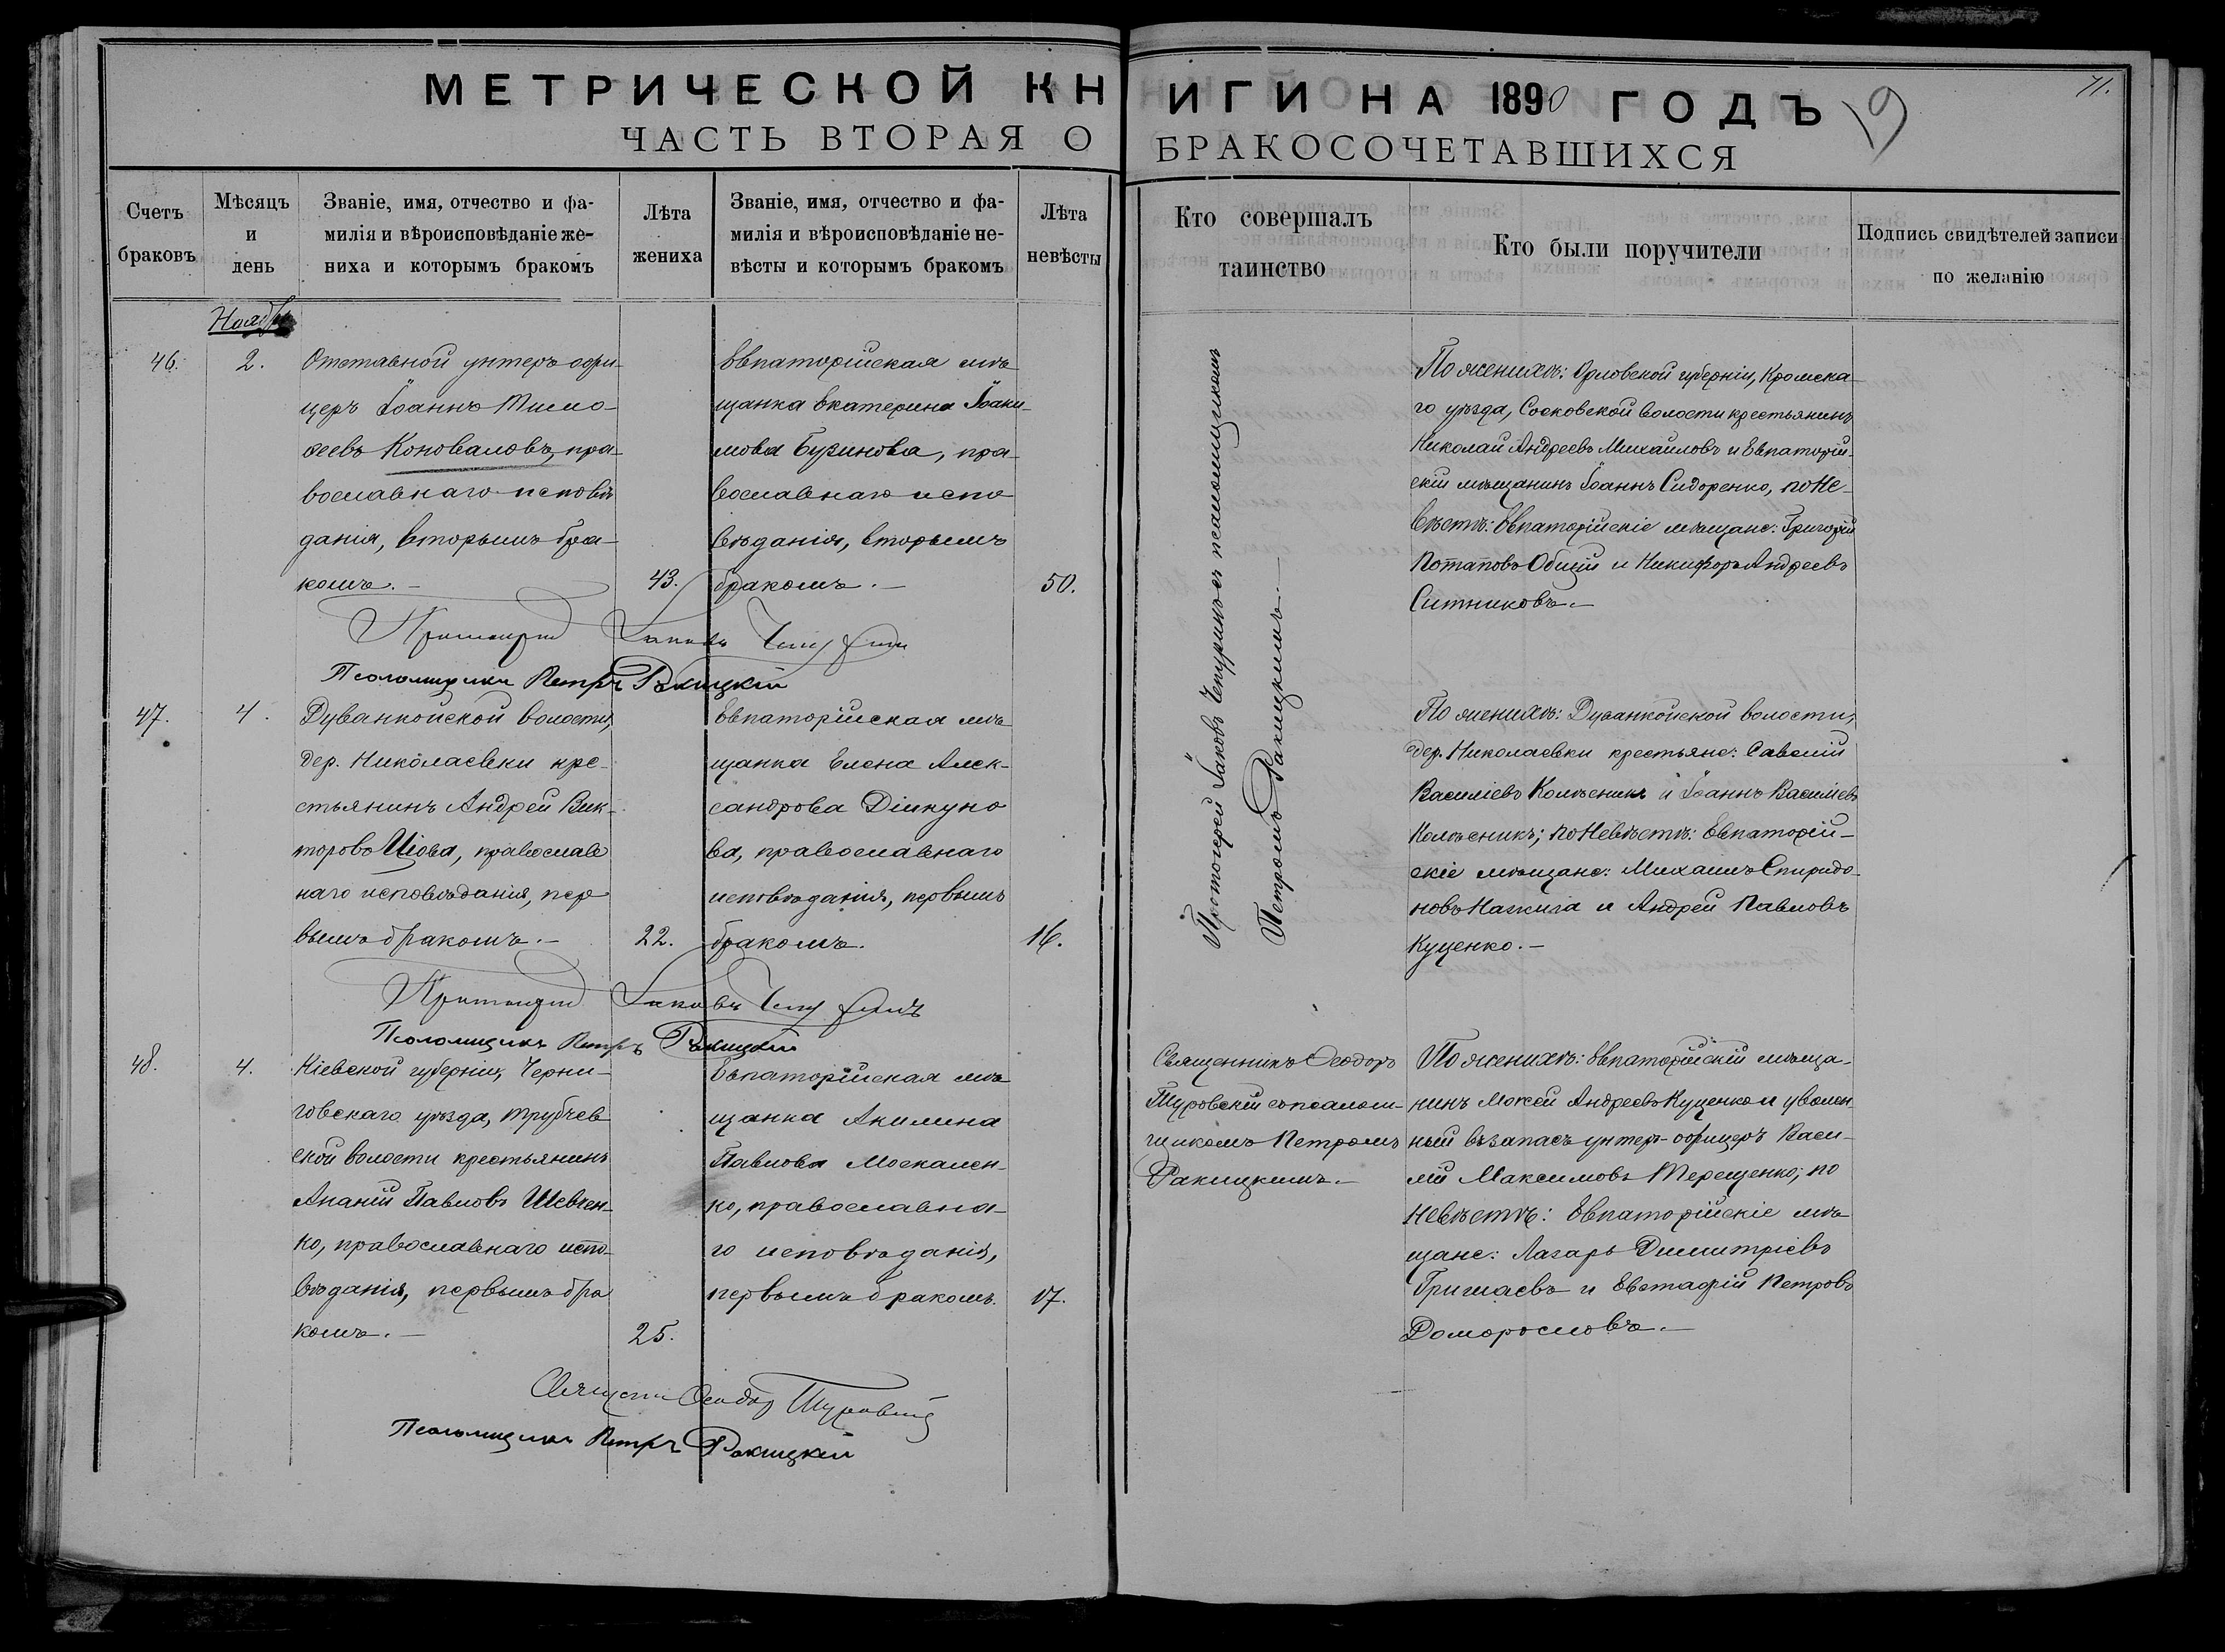 МЕТРИЧЕСКОЙ КНИГИ НА 1890 ГОДЪ
71.
ЧАСТЬ ВТОРАЯ О БРАКОСОЧЕТАВШИХСЯ
Счетъ браковъ
Мѣсяцъ и день
Званіе, имя, отчество и фа-
милія и вѣроисповѣданіе же-
ниха и которымъ бракомъ
Лѣта жениха
Званіе, имя, отчество и фа-
милія и вѣроисповѣданіе не-
вѣсты и которымъ бракомъ
Лѣта невѣсты
Кто совершалъ
таинство
Кто были поручители
Подпись свидѣтелей записи
по желанію
Ноябрь
46.
2.
Отставной унтеръ-офи-
церъ Іоаннъ Тимо-
ѳеевъ Коноваловъ, пра-
вославнаго исповѣ
данія, вторымъ бра-
комъ.—
43.
Евпаторійская мѣ
щанка Екатерина Іоаки-
мова Бузинова, пра-
вославнаго испо
вѣданія, вторымъ
бракомъ.—
50.
Протоіерей Іаковъ Чепуринъ съ псаломщикомъ
Петромъ Ракицкимъ.—
По женихѣ: Орловской губерніи, Кромска-
го уѣзда, Сосковской волости крестьянинъ
Николай Андреевъ Михайловъ и Евпаторій-
скій мѣщанинъ Іоаннъ Сидоренко, по Не-
вѣстѣ: Евпаторійскіе мѣщане: Григорій
Потаповъ Общій и Никифоръ Андреевъ
Ситниковъ.—
Протоіерей Іаковъ Чепуринъ
Псаломщикъ Петръ Ракицкій
47.
4.
Дуванкойской волости,
дер. Николаевки кре-
стьянинъ Андрей Вик-
торовъ, православ
наго исповѣданія, пер
вымъ бракомъ.—
22.
Евпаторійская мѣ
щанка Елена Алек-
сандрова Дикуно
ва, православнаго
исповѣданія, первымъ
бракомъ.
16.
По женихѣ: Дуванкойской волости,
дер. Николаевки крестьяне: Савелій
Василіевъ Колѣсникъ и Іоаннъ Василіевъ
Колѣсникъ; по Невѣстѣ: Евпаторій-
скіе мѣщане: Михаилъ Спиридо-
новъ и Андрей Павловъ
Куценко.—
Протоіерей Іаковъ Чепуринъ
Псаломщикъ Петръ Ракицкій
48.
4.
Кіевской губерніи, Черни-
говскаго уѣзда, Трубчев
ской волости крестьянинъ
Ананій Павловъ Шевчен-
ко, православнаго испо-
вѣданія, первымъ бра
комъ.—
25.
Евпаторійская мѣ
щанка Акилина
Павлова Москален-
ко, православна-
го исповѣданія,
первымъ бракомъ.
17.
Священникъ Ѳеодоръ
Туровскій съ псалом-
щикомъ Петромъ
Ракицкимъ.—
По женихѣ: Евпаторійскій мѣща-
нинъ Мокей Андреевъ Куценко и уволен-
ный въ запасъ унтеръ-офицеръ Васи-
лій Максимовъ Терещенко; по
Невѣстѣ: Евпаторійскіе мѣ-
щане: Лазарь Димитріевъ
Гришаевъ и Евстафій Петровъ
Доморословъ.—
Священникъ Ѳеодоръ Туровскій
Псаломщикъ Петръ Ракицкій